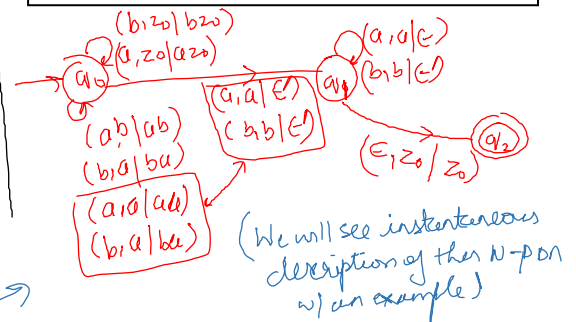 (b,z0|bz0)
(a,z0|az0)
q0
(a,a|ε)
(b,b|ε)
q1
(a,a|ε)
(b,b|ε)
(a,b|ab)
(b,a|ba)
(a,a|aa)
(b,a|ba)
(ε,z0/z0)
q2
(We will see instantaneous
description of this N-PDA
w/ an example)